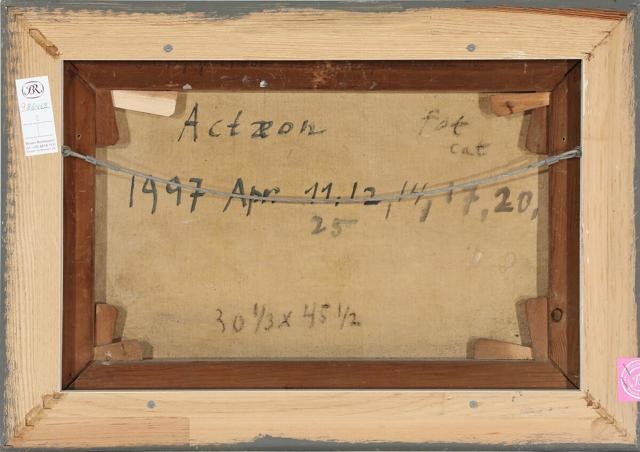 BR
Actæon
fot
cat
1997 Apr. 11, 12, 14, 17, 20,
25
30 1/3 x 45 1/2